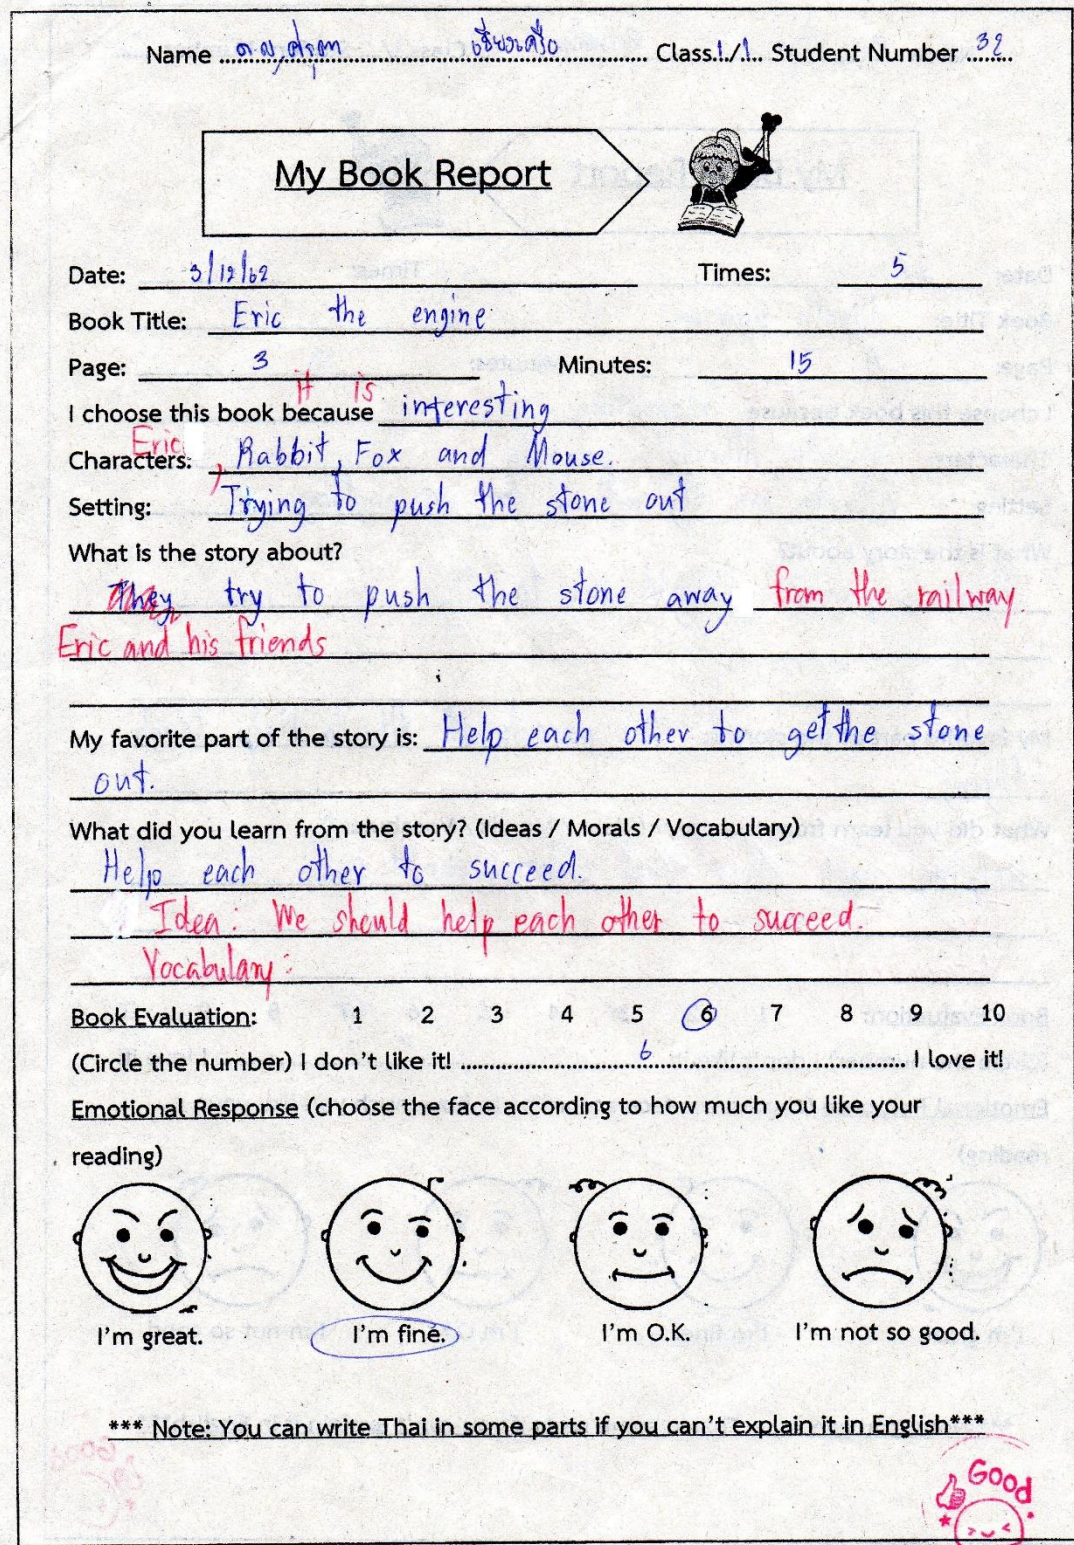 Name ด.ญ. Class 1/1 Student Number 32
My Book Report
Date: 3/12/62 Times: 5
Book Title: Eric the engine
Page: 3 Minutes: 15
it is
I choose this book because interesting
Eric
Characters: , Rabbit, Fox and Mouse.
Setting: Trying to push the stone out
What is the story about?
They try to push the stone away from the railway
Eric and his friends
My favorite part of the story is: Help each other to get the stone
out.
What did you learn from the story? (Ideas / Morals / Vocabulary)
Help each other to succeed.
Idea: We should help each other to succeed.
Vocabulary:
Book Evaluation: 1 2 3 4 5 6 7 8 9 10
(Circle the number) I don't like it! ........ 6 ........ I love it!
Emotional Response (choose the face according to how much you like your
reading)
I'm great. I'm fine. I'm O.K. I'm not so good.
*** Note: You can write Thai in some parts if you can't explain it in English***
Good